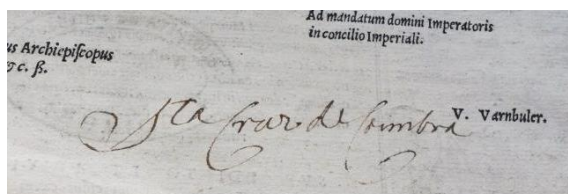 Ad mandatum domini Imperatoris
in concilio Imperiali.
us Archiepiſcopus
&c. ß.
Sta Cruz de Coimbra
V. Varnbuler.